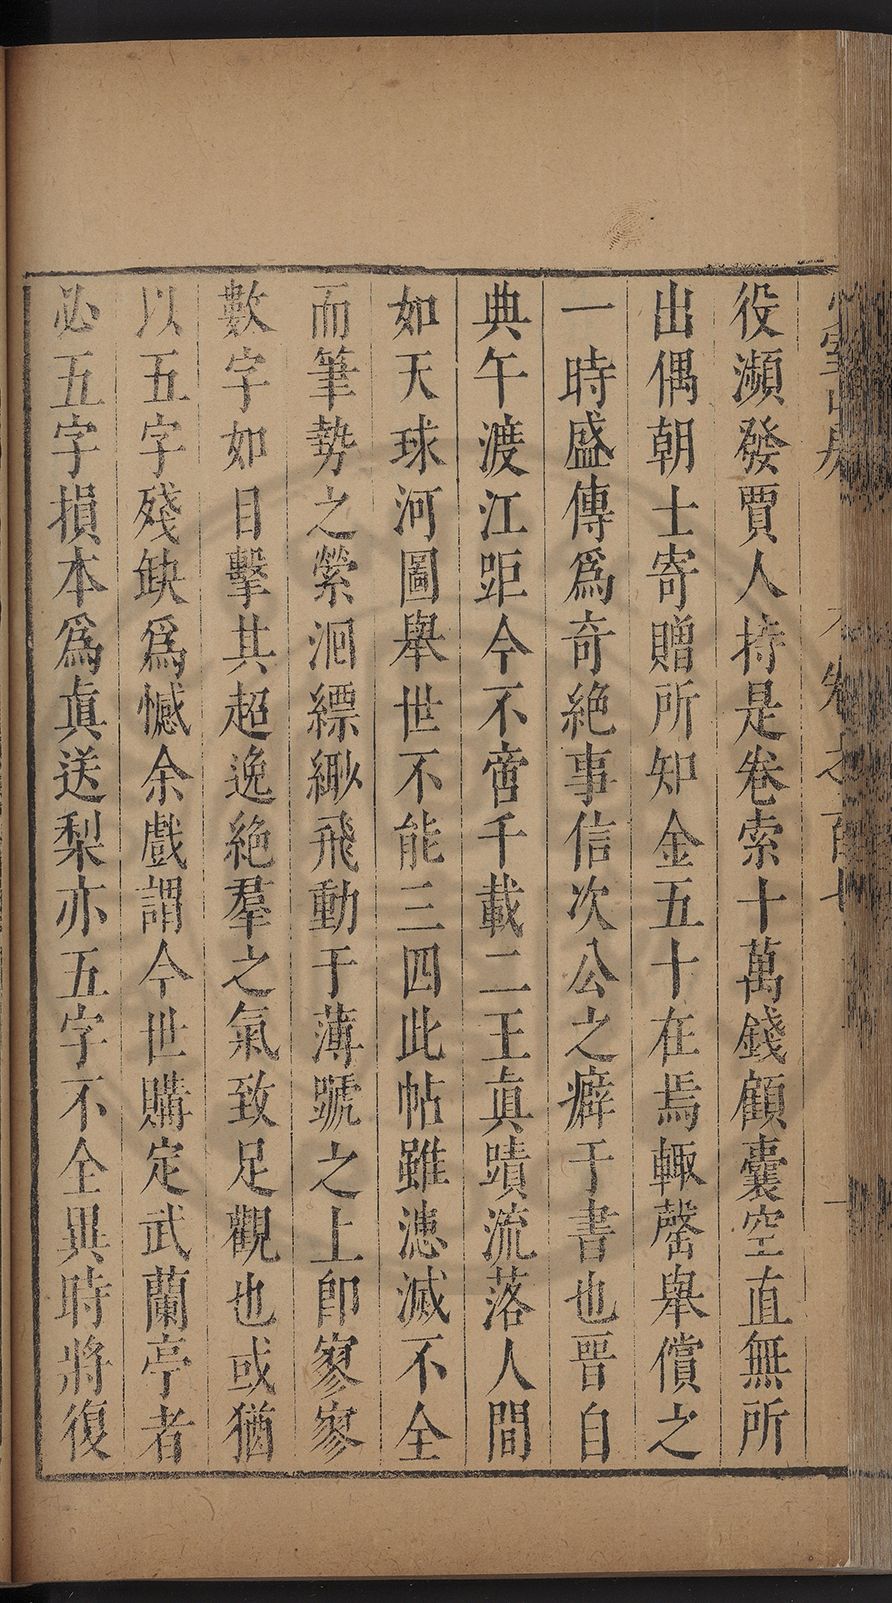 役瀕發賈人持是卷索十萬錢顧囊空直無所
出偶朝士寄贈所知金五十在焉輙罄舉償之
一時盛傳爲奇絶事信次公之癖于書也晋自
典午渡江距今不啻千載二王眞蹟流落人間
如天球河圖舉世不能三四此帖雖漶滅不全
而筆勢之縈洄縹緲飛動于薄蹏之上卽寥寥
數字如目擊其超逸絶羣之氣致足觀也或猶
以五字殘缺爲憾余戲謂今世購定武蘭亭者
必五字損本爲眞送梨亦五字不全異時將復